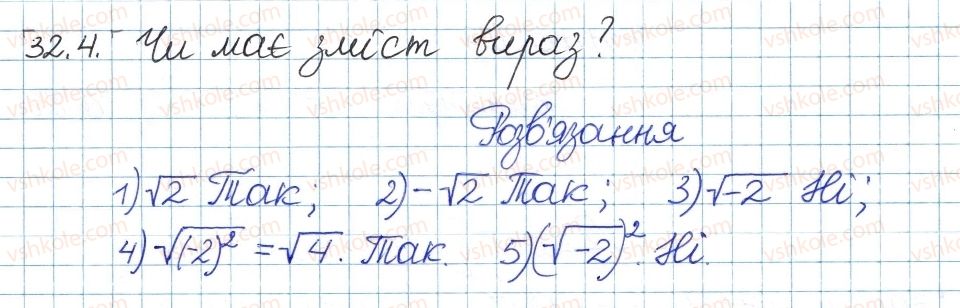 32.4. Чи має зміст вираз?
Розв'язання
1) √2 Так; 2) -√2 Так; 3) √-2 Ні;
4) √(-2)² = √4. Так. 5) (√-2)². Ні.
vshkole.com